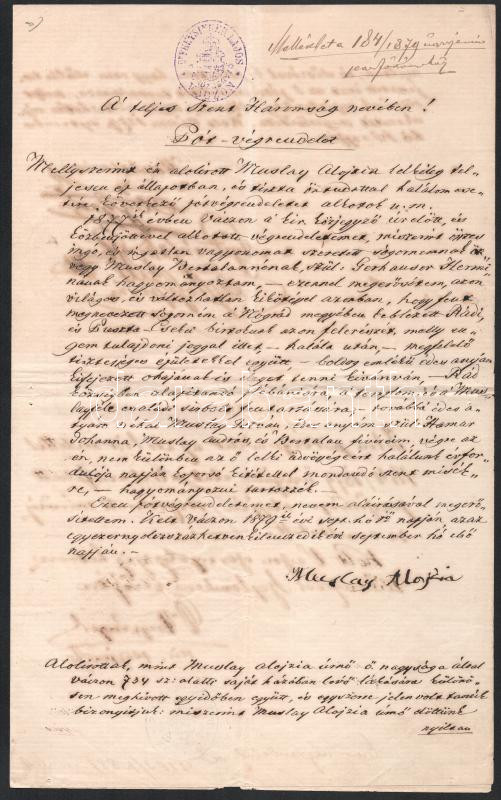 Melléklet a 184/1879
A teljes Szent Háromság nevében!
Pót-végrendelet
Mellyszerint én alolirott Muslay Alojzia lelkileg tel-
jesen ép állapotban, és tiszta öntudattal halálom ese-
tére következő pótvégrendeletet alkotok u. m.
1877ik évben Váczon a kir. közjegyző úr előtt, és
közbenjöttével alkotott végrendeletemet, miszerint összes
ingó, és ingatlan vagyonomat szeretett sógornémnak
Muslay Bertalannénak, szül: Gerhauser Hermi-
nának hagyományoztam, — ezennel megerősítem, azon
világos, és változhatlan kikötéssel azonban, hogy fent
megnevezett sógorném a Nógrád megyében keblezett Rádi,
és Puszta-Csekei birtoknak azon felerészét, melly en-
gem tulajdoni joggal illet, — halála után, — megfelelő
tisztességes épületekkel együtt — boldog emlékű édes anyám
kifejezett óhajának is eleget tenni kivánván, — Rád
községben alapítandó
édes a-
tyám, néhai Muslay István, édes anyám szül: Hamar
Johanna, Muslay András, és Bertalan fivéreim, végre az
én, nem különben az ő lelki üdvösségeért halálunk évfor-
dulója napján egy mondandó szent misék-
re, — hagyományozni tartozzék. —
Ezen pótvégrendeletemet, nevem aláirásával megerő-
sítettem. Kelt Váczon 1879ik évi sept. hó 1ső napján, azaz
egyezernyolczszázhetvenkilenczedik évi september hó első
napján. —
Muslay Alojzia
Alolirottak, mint Muslay Alojzia úrnő ő nagysága által
Váczon 734 sz: alatti saját házában levő lakására külön-
sen meghivott egyidőben együtt, és egyszerre jelen volt tanúk
bizonyítjuk: miszerint Muslay Alojzia úrnő előttünk
nyiltan